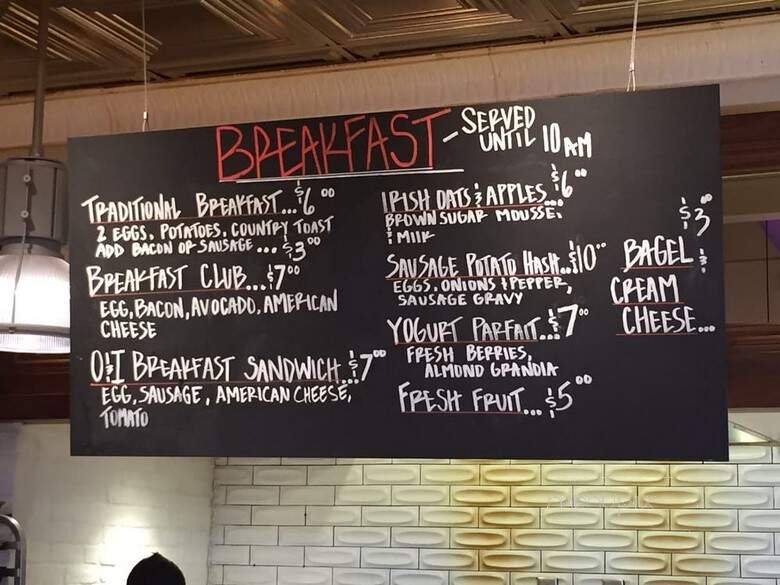 BREAKFAST - SERVED UNTIL 10 AM
TRADITIONAL BREAKFAST... $6.00
2 EGGS, POTATOES, COUNTRY TOAST
ADD BACON OR SAUSAGE... $3.00
BREAKFAST CLUB... $7.00
EGG, BACON, AVOCADO, AMERICAN
CHEESE
O&I BREAKFAST SANDWICH... $7.00
EGG, SAUSAGE, AMERICAN CHEESE,
TOMATO
IRISH OATS & APPLES... $6.00
BROWN SUGAR MOUSSE,
& MILK
SAUSAGE POTATO HASH... $10.00
EGGS, ONIONS & PEPPER,
SAUSAGE GRAVY
YOGURT PARFAIT... $7.00
FRESH BERRIES,
ALMOND GRANOLA
FRESH FRUIT... $5.00
$3.00
BAGEL &
CREAM
CHEESE...